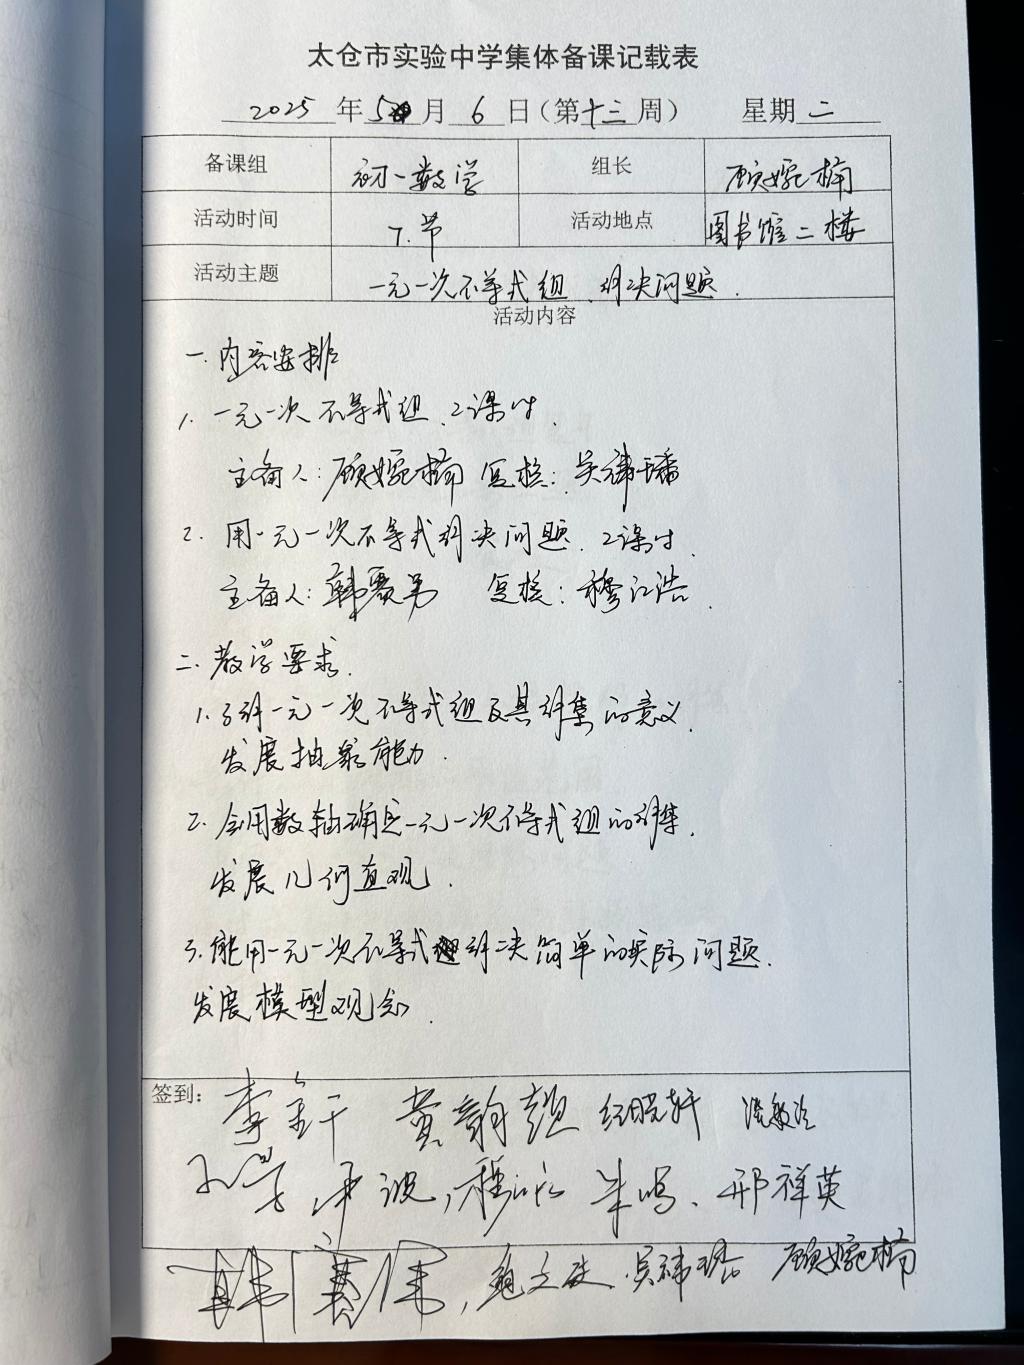 太仓市实验中学集体备课记载表
2025 年 5 月 6 日(第十三周) 星期二
备课组 初一数学 组长 顾婉楠
活动时间 7.节 活动地点 图书馆二楼
活动主题 一元一次不等式组、解决问题.
活动内容
一.内容安排
1. 一元一次不等式组、2课时.
主备人:顾婉楠 复核:吴祎璠
2. 用一元一次不等式解决问题、2课时.
主备人:韩 复核:穆江浩.
二.教学要求.
1.了解一元一次不等式组及其解集的意义.
发展抽象能力.
2.会用数轴确定一元一次不等式组的解集.
发展几何直观.
3.能用一元一次不等式组解决简单的实际问题.
发展模型观念.
签到: 李 黄韵
朱鸣、邢祥英
韩 吴祎璠 顾婉楠